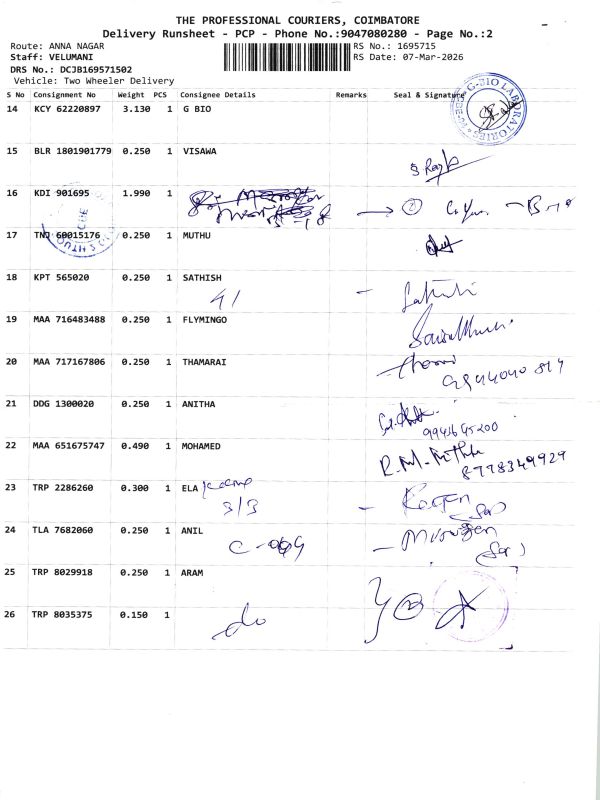 THE PROFESSIONAL COURIERS, COIMBATORE
Delivery Runsheet - PCP - Phone No.:9047080280 - Page No.:2
Route: ANNA NAGAR
RS No.: 1695715
Staff: VELUMANI
RS Date: 07-Mar-2026
DRS No.: DCJB169571502
Vehicle: Two Wheeler Delivery
S No Consignment No Weight PCS Consignee Details Remarks Seal & Signature
G-BIO LABORATORIES
14 KCY 62220897 3.130 1 G BIO
15 BLR 1801901779 0.250 1 VISAWA
16 KDI 901695 1.990 1
17 TNJ 60015176 0.250 1 MUTHU
18 KPT 565020 0.250 1 SATHISH
41
19 MAA 716483488 0.250 1 FLYMINGO
20 MAA 717167806 0.250 1 THAMARAI
21 DDG 1300020 0.250 1 ANITHA
9941645200
22 MAA 651675747 0.490 1 MOHAMED
8778349929
23 TRP 2286260 0.300 1 ELA
3/3
24 TLA 7682060 0.250 1 ANIL
25 TRP 8029918 0.250 1 ARAM
26 TRP 8035375 0.150 1
do